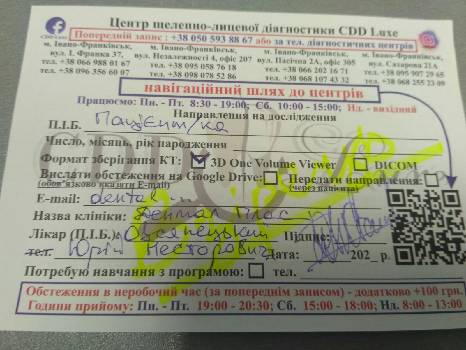 Центр щелепно-лицевої діагностики CDD Luxe
Попередній запис : +38 050 593 88 67 або за тел. діагностичних центрів
CDD Luxe
м. Івано-Франківськ, м. Івано-Франківськ, м. Івано-Франківськ, м. Івано-Франківськ,
вул. І. Франка 37, вул. Незалежності 4, офіс 207 вул. Пасічна 2А, офіс 305 вул. Сахарова 21А
тел. +38 066 988 01 67 тел. +38 095 058 76 18 тел. +38 066 202 16 71 тел. +38 095 907 29 65
тел. +38 096 356 60 07 тел. +38 098 078 52 86 тел. +38 068 107 43 32 тел. +38 068 255 23 09
навігаційний шлях до центрів
Працюємо: Пн. - Пт. 8:30 - 19:00; Сб. 10:00 - 15:00; Нд. - вихідний
Направлення на дослідження
П.І.Б. Пацієнт/ка
Число, місяць, рік народження
Формат зберігання КТ: 3D One Volume Viewer DICOM
Вислати обстеження на Google Drive: Передати направлення:
(обов'язково вказати E-mail) (через пацієнта)
E-mail: дентал
Назва клініки: Дентал Плюс
Лікар (П.І.Б.) Підпис:
тел. Юрій Несторович Дата: 202 р.
Потребую навчання з програмою: тел.
Обстеження в неробочий час (за попереднім записом) - додатково +100 грн.
Години прийому: Пн. - Пт. 19:00 - 20:30; Сб. 15:00 - 18:00; Нд. 8:00 - 13:00